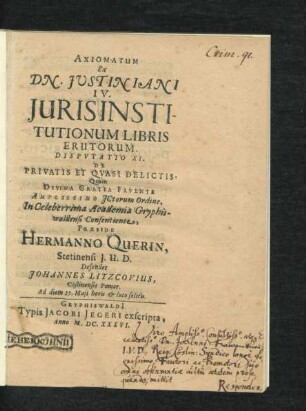 Crim. 91.
AXIOMATUM
Ex
DN. JUSTINIANI
IV.
JURIS INSTI-
TUTIONUM LIBRIS
ERUTORUM
DISPUTATIO XI.
DE
PRIVATIS ET QUASI DELICTIS.
Quam
DIVINA GRATIA FAVENTE
AMPLISSIMO JCtorum Ordine,
In Celeberrima Academia Gryphis-
waldensi Consentiente,
PRÆSIDE
HERMANNO QUERIN,
Stetinensi J. U. D.
Defendet
JOHANNES LITZCOVIUS,
Cößlinensis Pomer.
Ad diem 27. Maji horis & loco solitis.
GRYPHISWALDI
Typis JACOBI JEGERI exscripta,
Anno M. DC. XXXVI.
Viro Ampliss.
Dn. Johanni
J. U. D. Syndico
mittit
Respondens